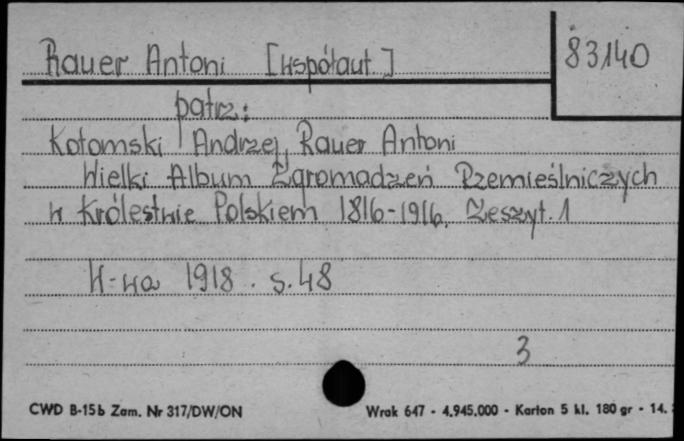 Rauer Antoni [współaut.]
83140
patrz:
Kołomski Andrzej, Rauer Antoni
Wielki Album Zgromadzeń Rzemieślniczych
w Królestwie Polskiem 1816-1916. Zeszyt. 1
W-wa 1918. s. 48
3
CWD B-15b Zam. Nr 317/DW/ON
Wrak 647 - 4.945.000 - Karton 5 kl. 180 gr - 14.